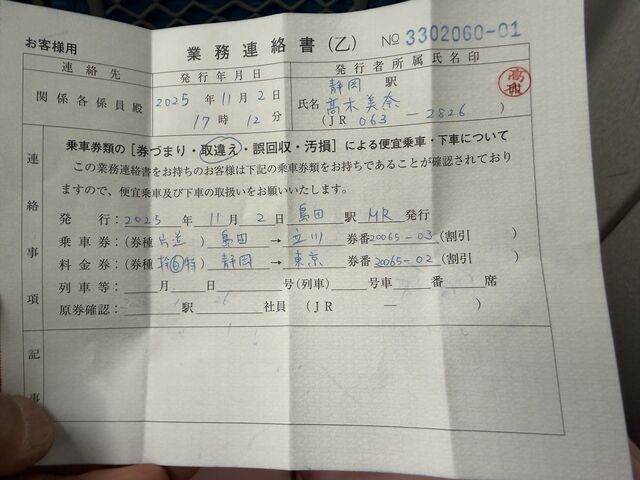 お客様用
業務連絡書(乙) № 3302060-01
連絡先 発行年月日 発行者所属氏名印
関係各係員殿 2025年11月2日 静岡駅
17時12分 氏名 高木美奈
(JR 063 ― 2826 )
乗車券類の[券づまり・取違え・誤回収・汚損]による便宜乗車・下車について
この業務連絡書をお持ちのお客様は下記の乗車券類をお持ちであることが確認されており
ますので、便宜乗車及び下車の取扱いをお願いいたします。
連絡事項
発行:2025年11月2日 島田駅 MR 発行
乗車券:(券種 片道 ) 島田 → 立川 券番 20065-03 (割引 )
料金券:(券種 幹⑥特 ) 静岡 → 東京 券番 20065-02 (割引 )
列車等: 月 日 号(列車) 号車 番 席
原券確認: 駅 社員 (JR ― )
記事